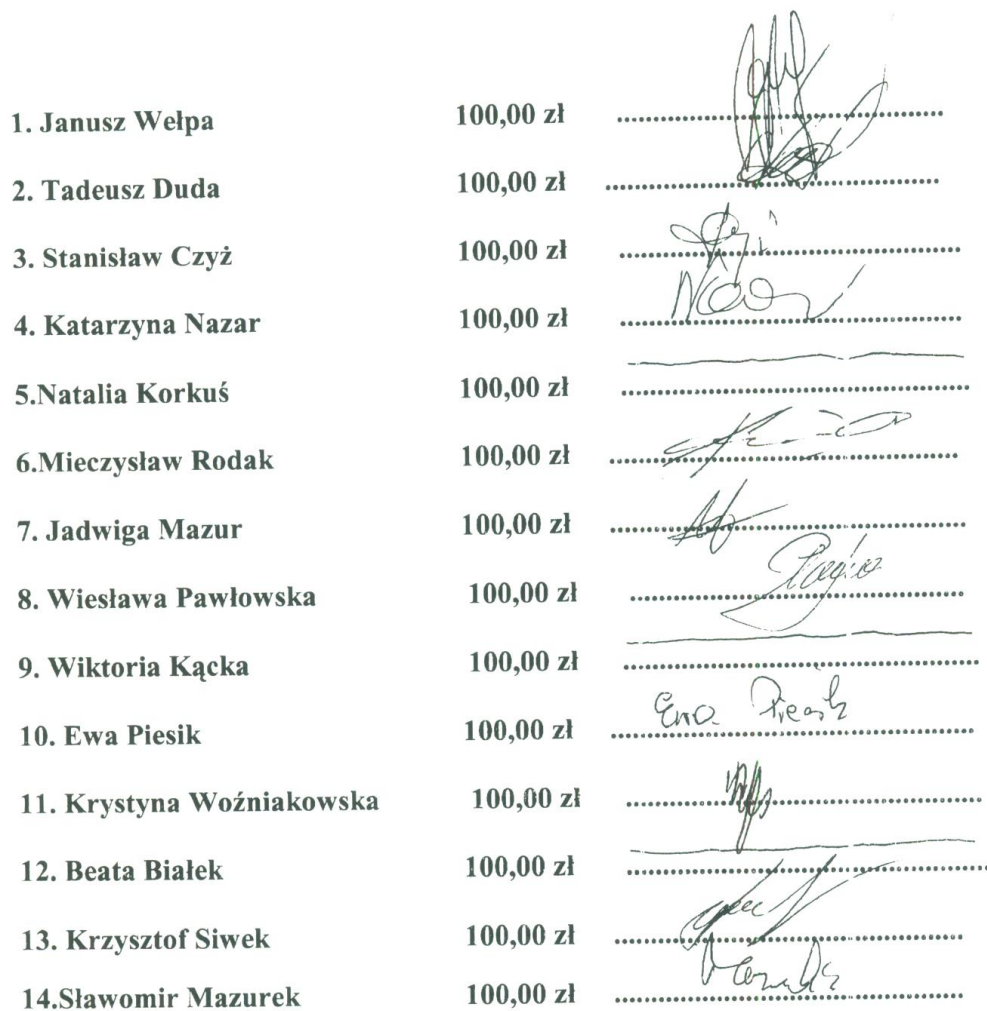 1. Janusz Wełpa 100,00 zł
2. Tadeusz Duda 100,00 zł
3. Stanisław Czyż 100,00 zł
4. Katarzyna Nazar 100,00 zł
5.Natalia Korkuś 100,00 zł
6.Mieczysław Rodak 100,00 zł
7. Jadwiga Mazur 100,00 zł
8. Wiesława Pawłowska 100,00 zł
9. Wiktoria Kącka 100,00 zł
10. Ewa Piesik 100,00 zł Ewa Piesik
11. Krystyna Woźniakowska 100,00 zł
12. Beata Białek 100,00 zł
13. Krzysztof Siwek 100,00 zł
14.Sławomir Mazurek 100,00 zł